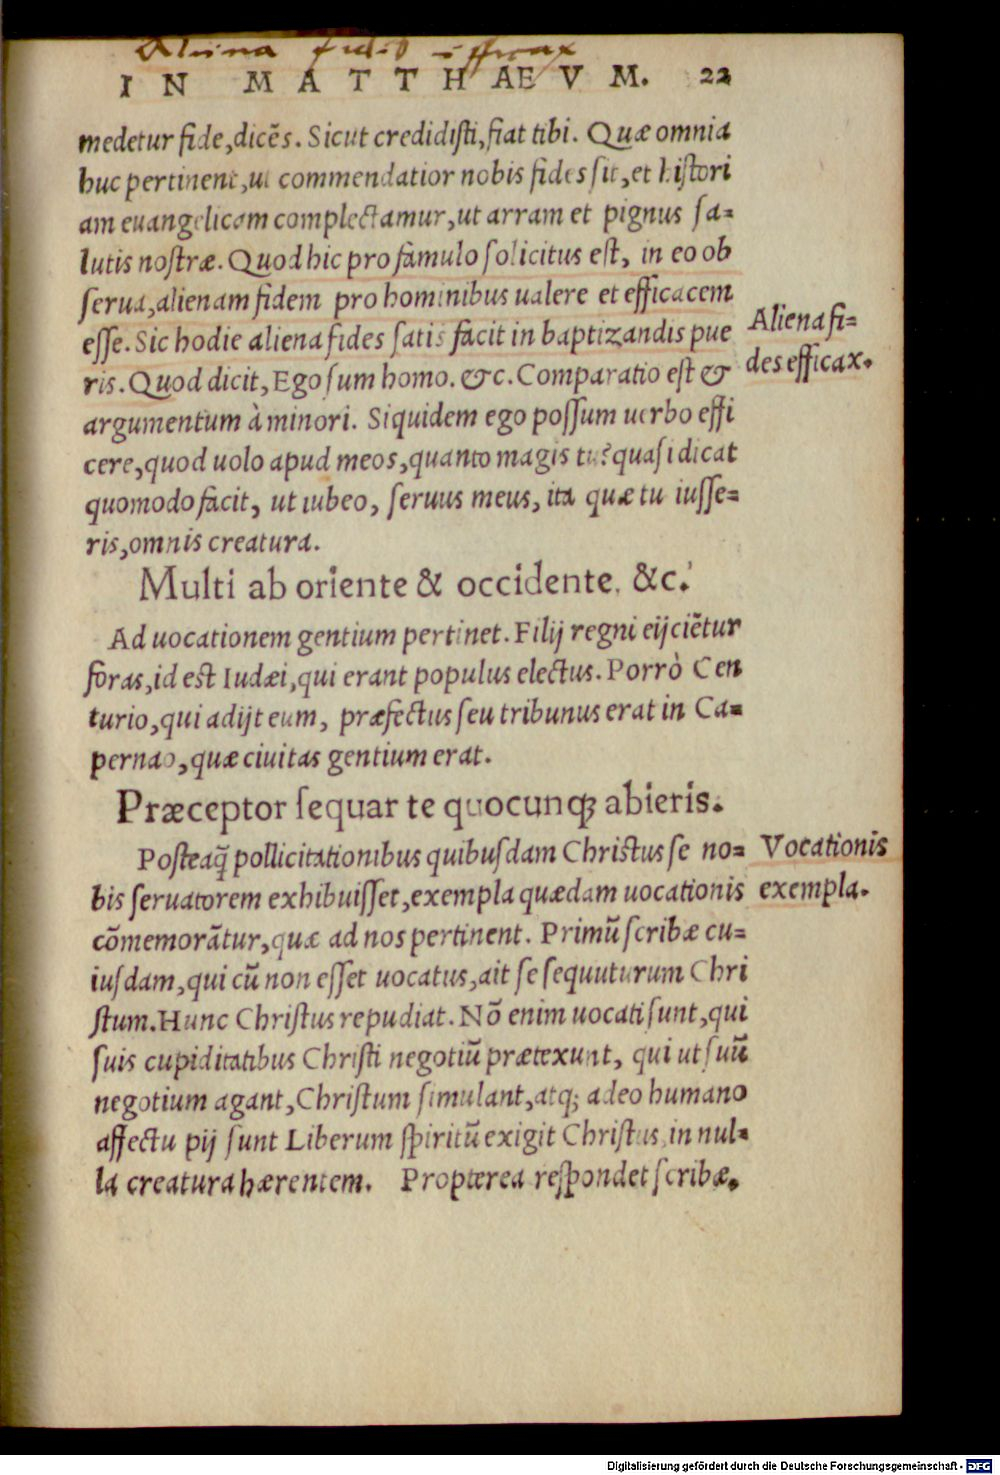 Aliena fides efficax
IN MATTHAEVM. 22
medetur fide,dicẽs. Sicut credidisti,fiat tibi. Quæ omnia
huc pertinent,ut commendatior nobis fides sit,et histori
am euangelicam complectamur,ut arram et pignus sa=
lutis nostræ. Quod hic pro famulo solicitus est, in eo ob
serua,alienam fidem pro hominibus ualere et efficacem
esse. Sic hodie aliena fides satis facit in baptizandis pue
Aliena fi=
des efficax.
ris. Quod dicit, Ego sum homo. &c. Comparatio est &
argumentum à minori. Siquidem ego possum uerbo effi
cere,quod uolo apud meos,quanto magis tu? quasi dicat
quomodo facit, ut iubeo, seruus meus, ita quæ tu iusse=
ris,omnis creatura.
Multi ab oriente & occidente. &c.
Ad uocationem gentium pertinet. Filij regni eijciẽtur
foras,id est Iudæi,qui erant populus electus. Porrò Cen
turio,qui adijt eum, præfectus seu tribunus erat in Ca=
pernao,quæ ciuitas gentium erat.
Præceptor sequar te quocunq; abieris.
Posteaq̃ pollicitationibus quibusdam Christus se no=
Vocationis
exempla.
bis seruatorem exhibuisset,exempla quædam uocationis
cõmemorãtur,quæ ad nos pertinent. Primũ scribæ cu=
iusdam,qui cũ non esset uocatus,ait se sequuturum Chri
stum. Hunc Christus repudiat. Nõ enim uocati sunt,qui
suis cupiditatibus Christi negotiũ prætexunt, qui ut suũ
negotium agant,Christum simulant,atq; adeo humano
affectu pij sunt Liberum spiritũ exigit Christus in nul=
la creatura hærentem. Propterea respondet scribæ.
Digitalisierung gefördert durch die Deutsche Forschungsgemeinschaft - DFG